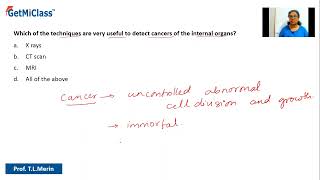 GetMiClass™
Which of the techniques are very useful to detect cancers of the internal organs?
a. X rays
b. CT scan
c. MRI
d. All of the above
Cancer → uncontrolled abnormal
cell division and growth
→ immortal
Prof. T.L.Merin